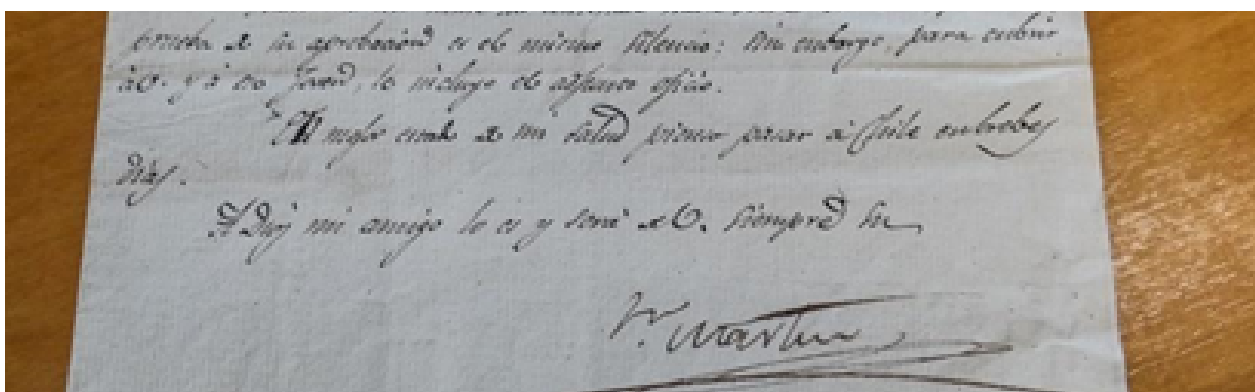 prueba de su aprobacion es el mismo silencio: sin enbargo, para cubrir
à V. y à ese Joven, le incluyo el adjunto oficio.
El mejor estado de mi salud pienso pasar à Chile en brebes
dias.
A Dios mi amigo lo es y será de V. siempre su
Sn. Martin